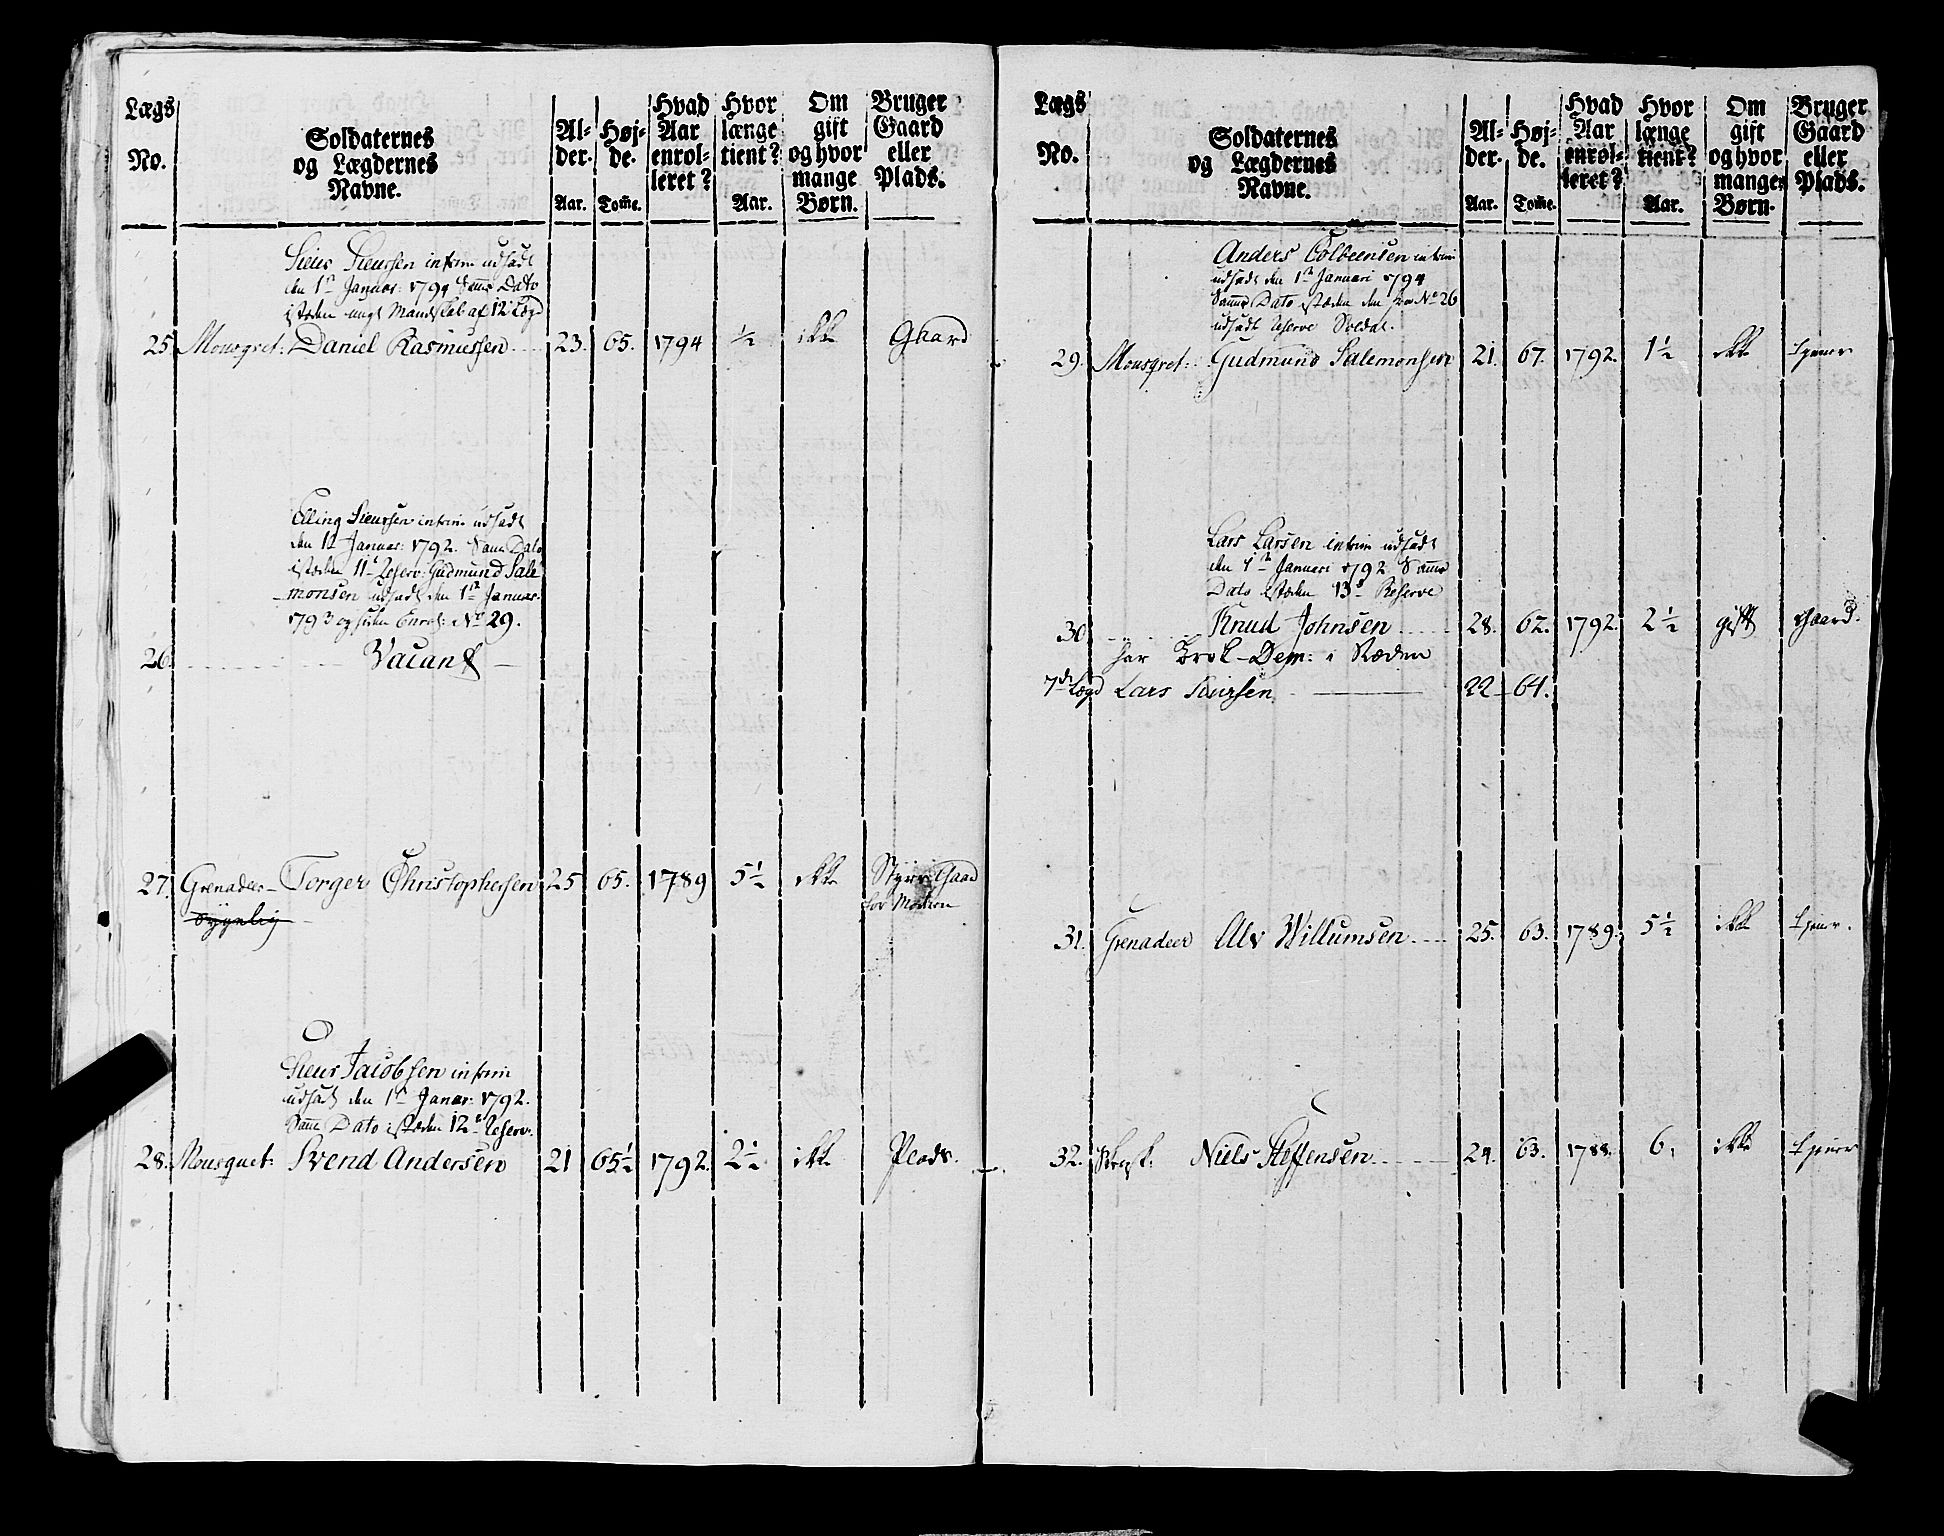 Lægs No. Soldaternes og Lægdernes Navne. Al- der. Aar. Høj- de. Tom̄e. Hvad Aar enrol- leret? Hvor længe tient? Aar. Om gift og hvor mange Børn. Bruger Gaard eller Plads.
Siur Siursen interim udsadt
den 1te Januar: 1794 Samme Dato
isteden ungt Mandskab af 12 Lægd
25 Mousqvet: Daniel Rasmussen 23. 65. 1794 ½ ikke Ghard
Elling Siursen interim udsadt
den 1te Januar: 1792. Samme Dato
isteden 11te Reserv: Gudmund Sale
monsen udsadt den 1te Januar
1793 og siden Enrol: No 29.
26. Vacant
27. Grenadeer Torger Christophersen 25 65. 1789 5½ ikke Styrer Gaard
Sygelig for Modren
Siur Jacobsen interim
udsadt den 1te Januar: 1792.
Samme Dato isteden 12te Reserv:
28. Mousquet: Svend Andersen 21 65½ 1792. 2½ ikke Plads.
Lægs No. Soldaternes og Lægdernes Navne. Al- der. Aar. Høj- de. Tom̄e. Hvad Aar enrol- leret? Hvor længe tient? Aar. Om gift og hvor mange Børn. Bruger Gaard eller Plads.
Anders Colbeensen interim
udsadt den 1te Januari 1794
Samme Dato isteden den fra No 26
udsadt Reserve Soldat.
29. Mousqvet: Gudmund Salemonsen 21. 67. 1792. 1½ ikke tjener
Lars Larsen interim udsadt
den 1te Januari 1792 Samme
Dato isteden 13de Reserve
30 Knud Johnsen 28. 62. 1792. 2½ gift Gaard.
har Brok-Dem: i Stæden
7de Lægd Lars Siursen 22 64.
31. Grenadeer Alv Willumsen 25. 63. 1789. 5½ ikke tjener.
32. Niels Steffensen 24. 63. 1788. 6. ikke tjener